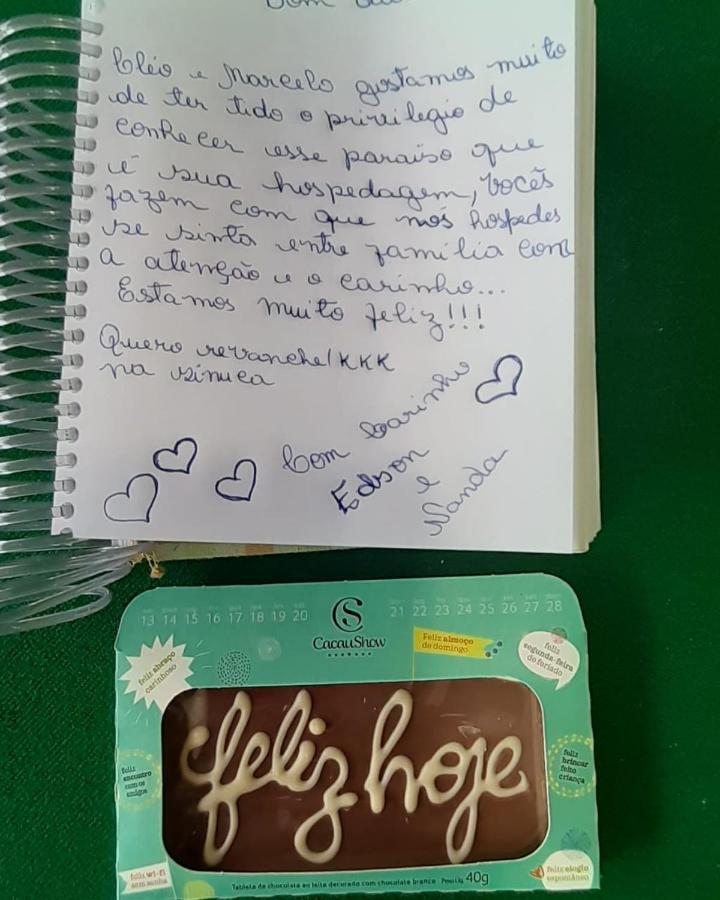 Cléo e Marcelo gostamos muito
de ter tido o privilegio de
conhecer esse paraiso que
é sua hospedagem, vocês
fazem com que nós hospedes
se sinta entre família com
a atenção e o carinho...
Estamos muito feliz!!!
Quero revanche/KKK
na sinuca
Com Carinho
Edson
e
Nanda
13 14 15 16 17 18 19 20
21 22 23 24 25 26 27 28
CS
CacauShow
Feliz almoço
de domingo
feliz
segunda-feira
de feriado
feliz abraço
carinhoso
feliz hoje
feliz
encontro
com os
amigos
feliz
brincar
feito
criança
feliz wi-fi
sem senha
feliz elogio
espontâneo
Tablete de chocolate ao leite decorado com chocolate branco - Peso Líq. 40g